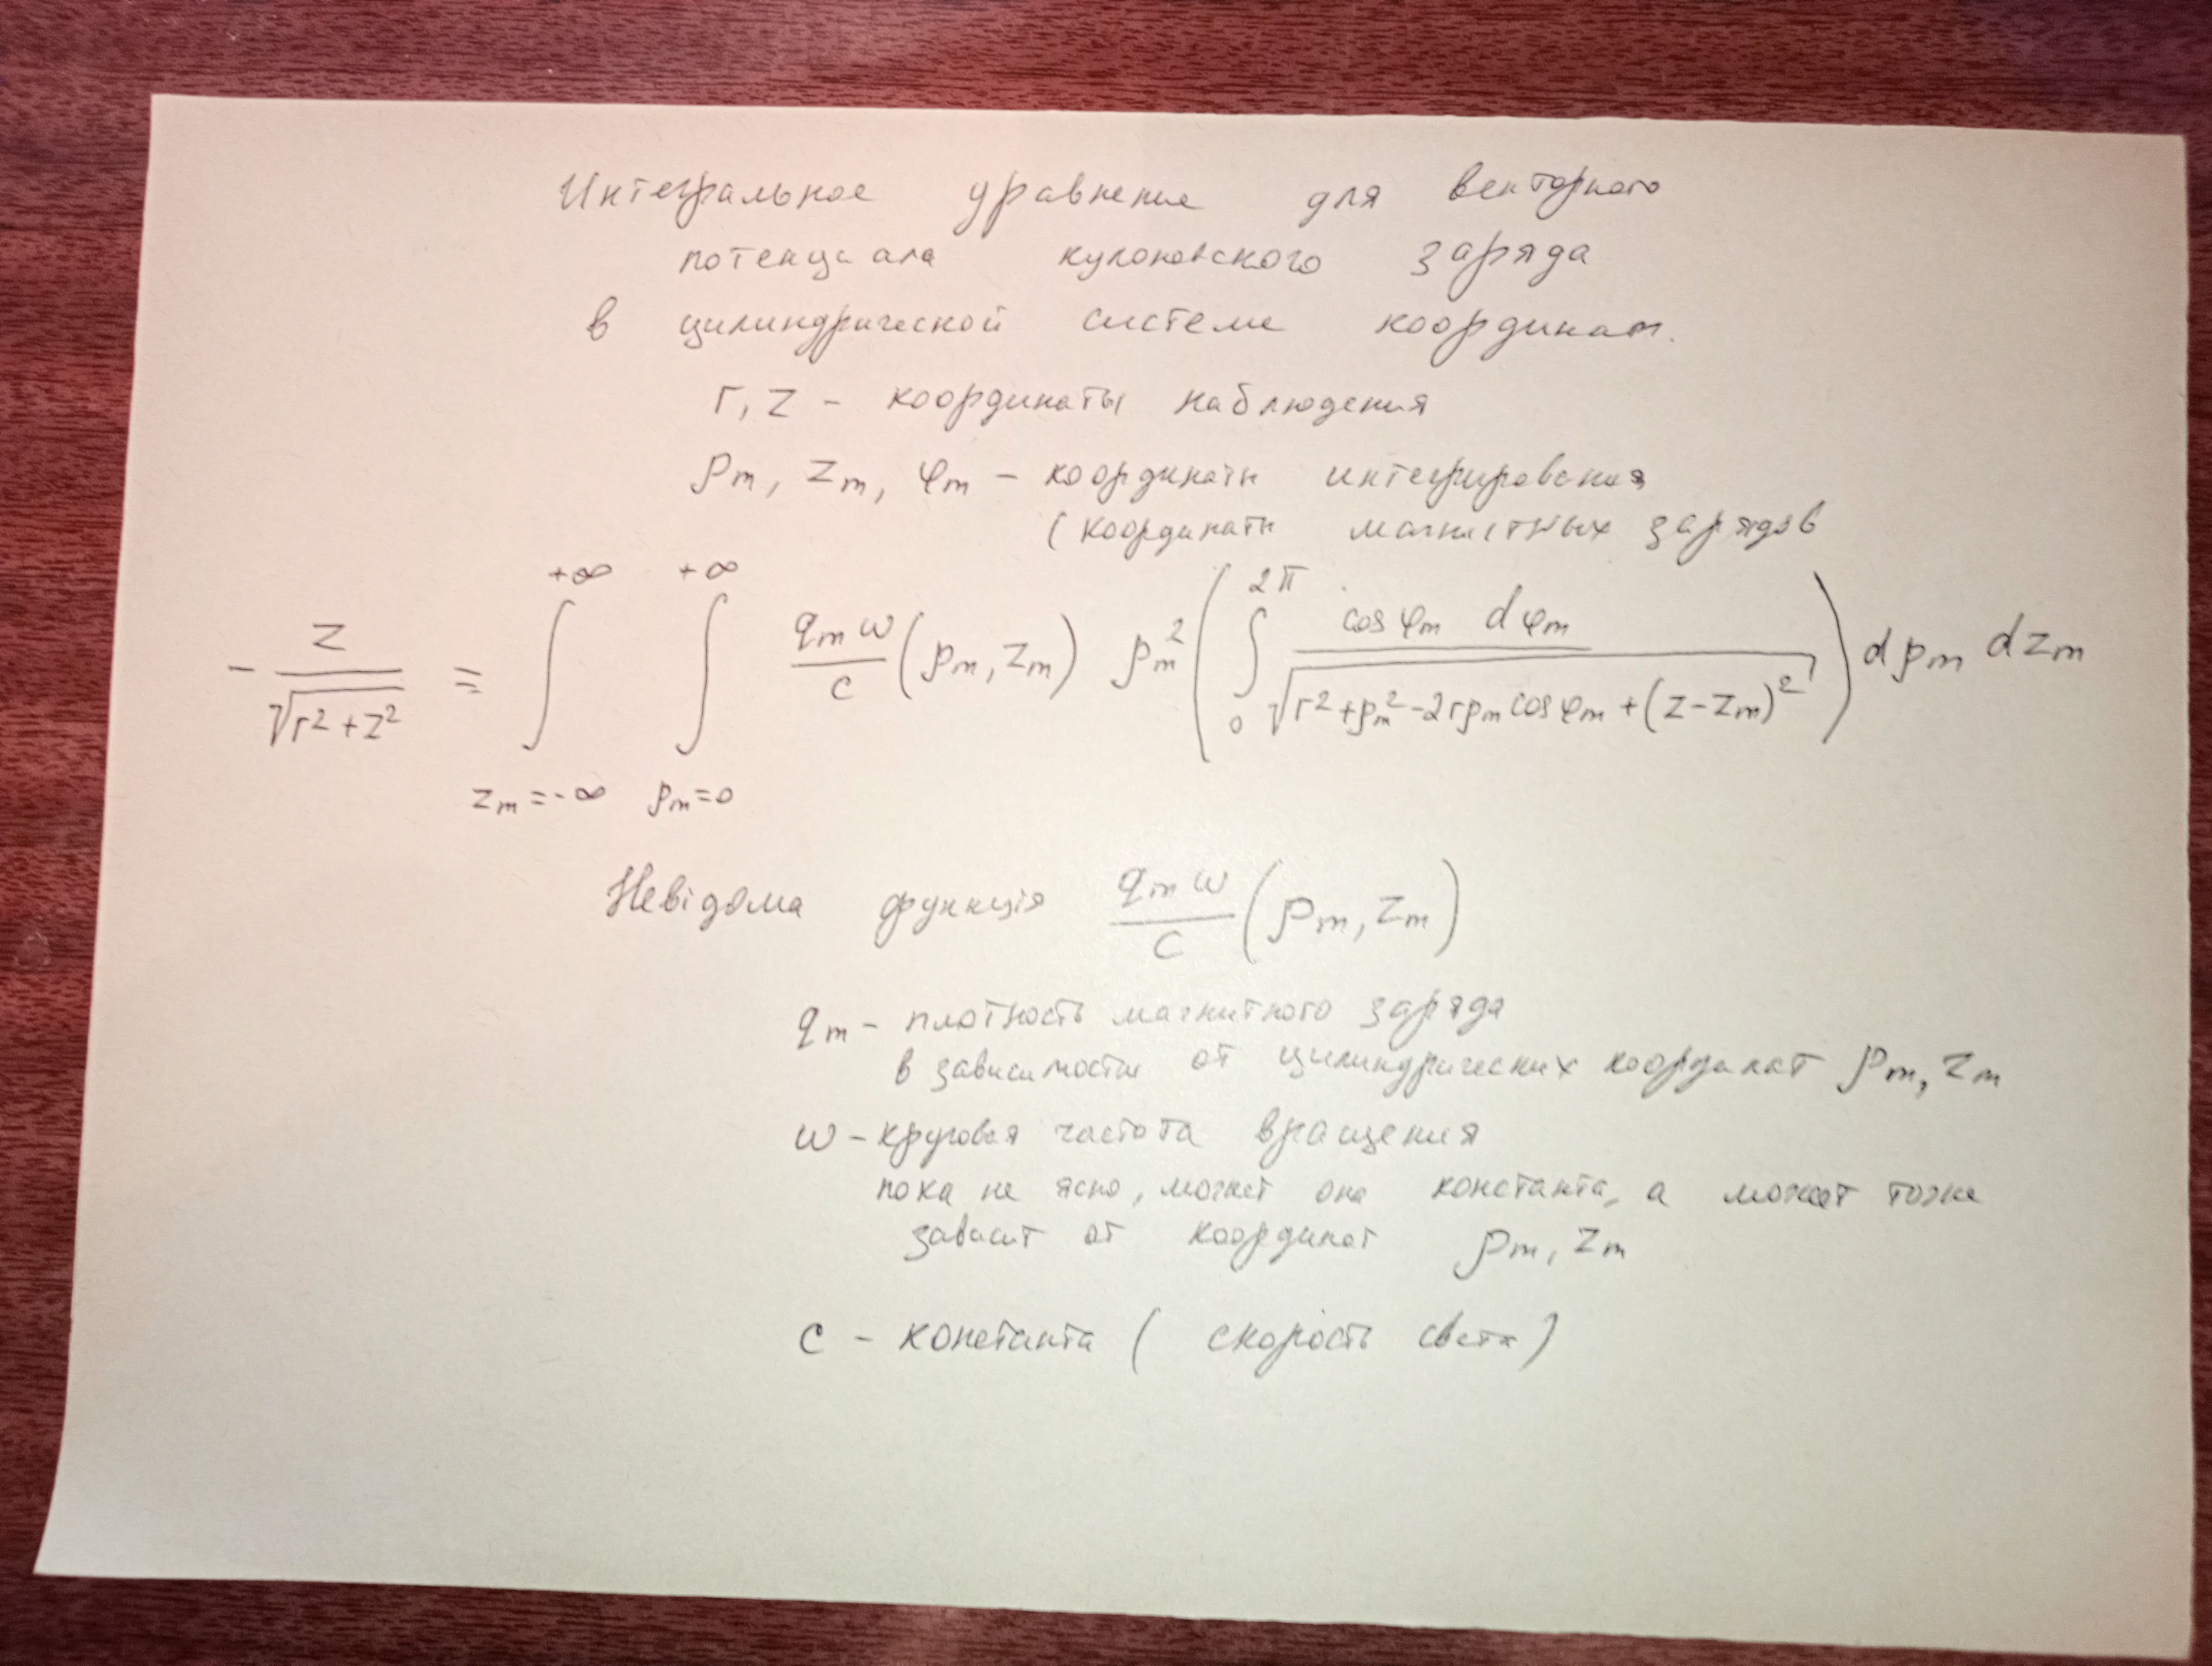 Интегральное уравнение для векторного
потенциала кулоновского заряда
в цилиндрической системе координат.
r, z - координаты наблюдения
ρm, zm, φm - координаты интегрирования
(координаты магнитных зарядов
- z / √(r² + z²) = ∫_{zm=-∞}^{+∞} ∫_{ρm=0}^{+∞} qm ω / c (ρm, zm) ρm² ( ∫_0^{2π} cos φm dφm / √(r² + ρm² - 2rρm cos φm + (z - zm)²) ) dρm dzm
Невідома функція qm ω / c (ρm, zm)
qm - плотность магнитного заряда
в зависимости от цилиндрических координат ρm, zm
ω - круговая частота вращения
пока не ясно, может она константа, а может тоже
зависит от координат ρm, zm
c - константа ( скорость света)